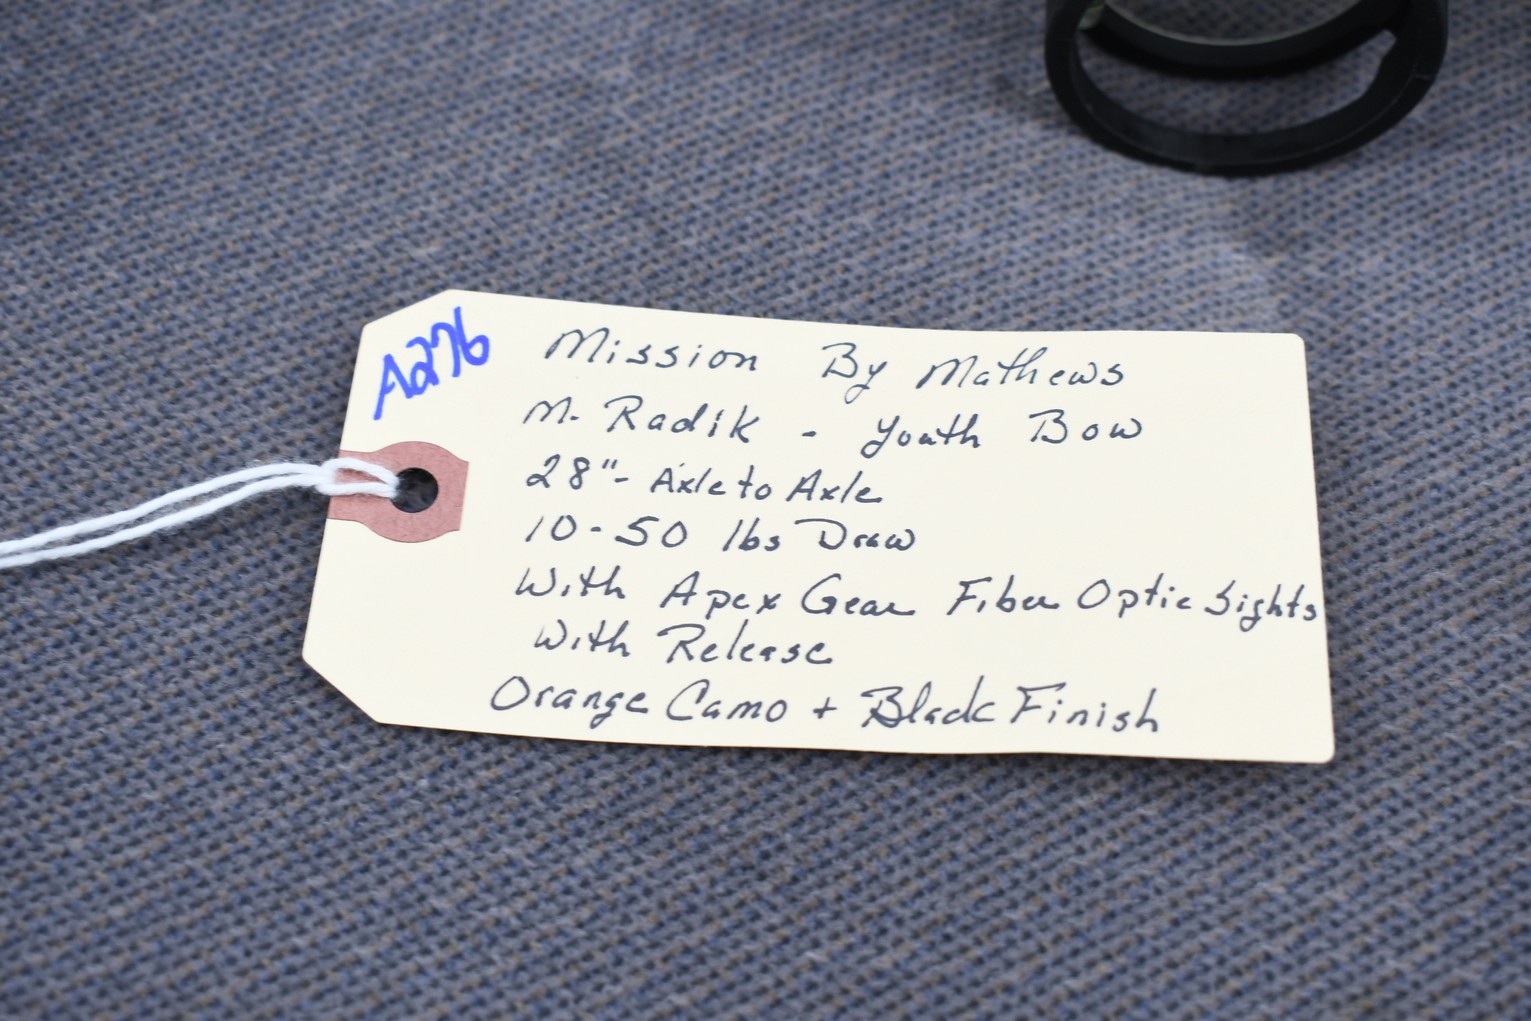 A276
Mission By Mathews
M. Radik - Youth Bow
28"- Axle to Axle
10-50 lbs Draw
With Apex Gear Fiber Optic Sights
With Release
Orange Camo + Black Finish